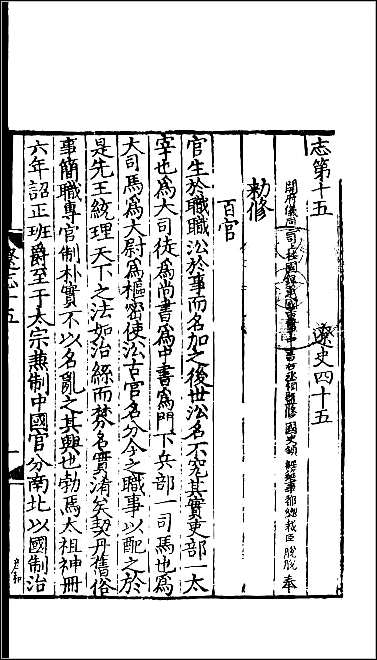 志第十五 遼史四十五
開府儀同三司上柱國録軍國重事中書右丞相監修國史領經筵事都總裁臣脫脫奉
勑修
百官
官生於職職㳂於事而名加之後世㳂名不究其實吏部一太
宰也爲大司徒爲尚書爲中書爲門下兵部一司馬也爲
大司馬爲大尉爲樞密使㳂古官名分今之職事以配之於
是先王統理天下之法如治絲而棼名實淆矣契丹舊俗
事簡職專官制朴實不以名亂之其興也勃焉太祖神冊
六年詔正班爵至于太宗兼制中國官分南北以國制治
遼志十五